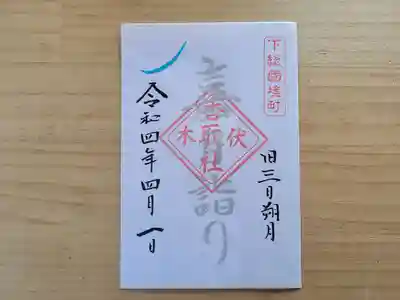 下総國境町
旧三日朔月
伏木
香取社
詣り
令和四年四月一日